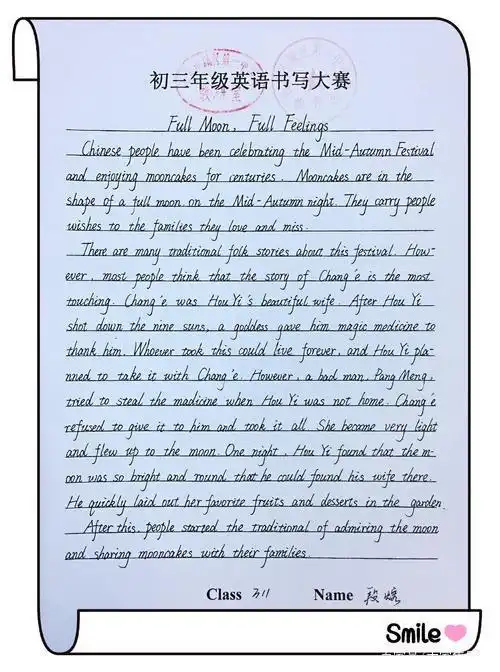 初三年级英语书写大赛
Full Moon, Full Feelings
Chinese people have been celebrating the Mid-Autumn Festival
and enjoying mooncakes for centuries. Mooncakes are in the
shape of a full moon on the Mid-Autumn night. They carry people
wishes to the families they love and miss.
There are many traditional folk stories about this festival. How-
ever, most people think that the story of Chang'e is the most
touching. Chang'e was Hou Yi's beautiful wife. After Hou Yi
shot down the nine suns, a goddess gave him magic medicine to
thank him. Whoever took this could live forever, and Hou Yi pla-
nned to take it with Chang'e. However, a bad man, Pang Meng,
tried to steal the madicine when Hou Yi was not home. Chang'e
refused to give it to him and took it all. She became very light
and flew up to the moon. One night, Hou Yi found that the m-
oon was so bright and round that he could found his wife there.
He quickly laid out her favorite fruits and desserts in the garden.
After this, people started the traditional of admiring the moon
and sharing mooncakes with their families.
Class 311 Name 段
Smile